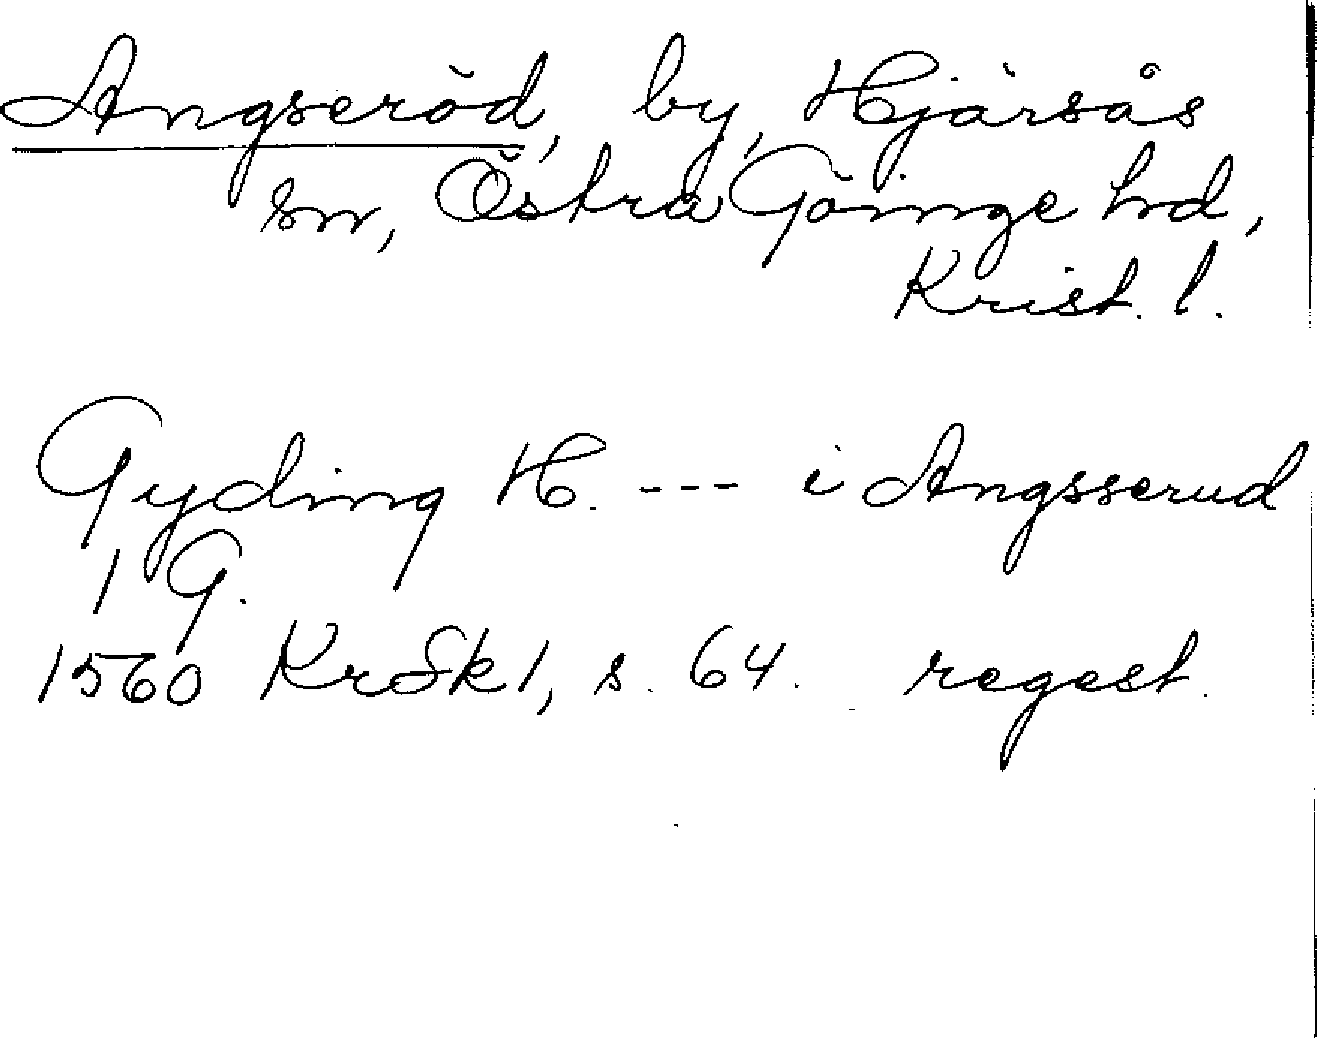 Angseröd, by, Hjärsås
sn, Östra Göinge hd,
Krist. l.
Gyding H. --- i Angsserud
1 G.
1560 KrSk 1, s. 64. regest.